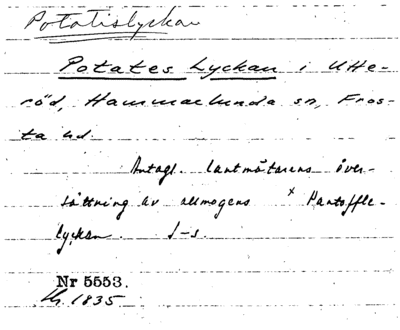 Potatislyckan
Potates Lyckan i Utte-
röd, Hammarlunda sn, Fros-
ta hd
Antagl. lantmätarens över-
sättning av allmogens × Pantoffle-
lyckan. J-s.
Nr 5553.
1835